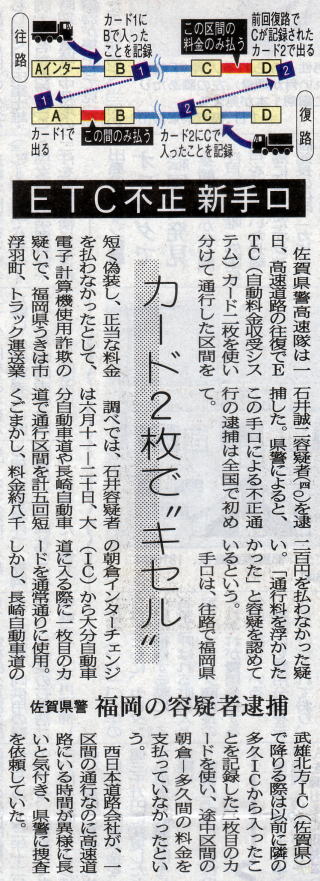 往路
カード1に
Bで入った
ことを記録
この区間の
料金のみ払う
前回復路で
Cが記録された
カード2で出る
Aインター
B
C
D
1
2
1
2
A
B
C
D
カード1で
出る
この間のみ払う
カード2にCで
入ったことを記録
復路
ETC不正 新手口
カード2枚で“キセル”
佐賀県警 福岡の容疑者逮捕
佐賀県警高速隊は一
日、高速道路の往復でE
TC(自動料金収受シス
テム)カード二枚を使い
分けて通行した区間を
短く偽装し、正当な料金
を払わなかったとして、
電子計算機使用詐欺の
疑いで、福岡県うきは市
浮羽町、トラック運送業
石井誠二容疑者(四〇)を逮
捕した。県警によると、
この手口による不正通
行の逮捕は全国で初め
て。
調べでは、石井容疑者
は六月十一―二十日、大
分自動車道や長崎自動車
道で通行区間を計五回短
くごまかし、料金約八千
二百円を払わなかった疑
い。「通行料を浮かした
かった」と容疑を認めて
いるという。
手口は、往路で福岡県
の朝倉インターチェンジ
(IC)から大分自動車
道に入る際に一枚目のカ
ードを通常通りに使用。
しかし、長崎自動車道の
武雄北方IC(佐賀県)
で降りる際は以前に隣の
多久ICから入ったこ
とを記録した二枚目のカ
ードを使い、途中区間の
朝倉―多久間の料金を
支払っていなかったとい
う。
西日本道路会社が、一
区間の通行なのに高速道
路にいる時間が異様に長
いと気付き、県警に捜査
を依頼していた。